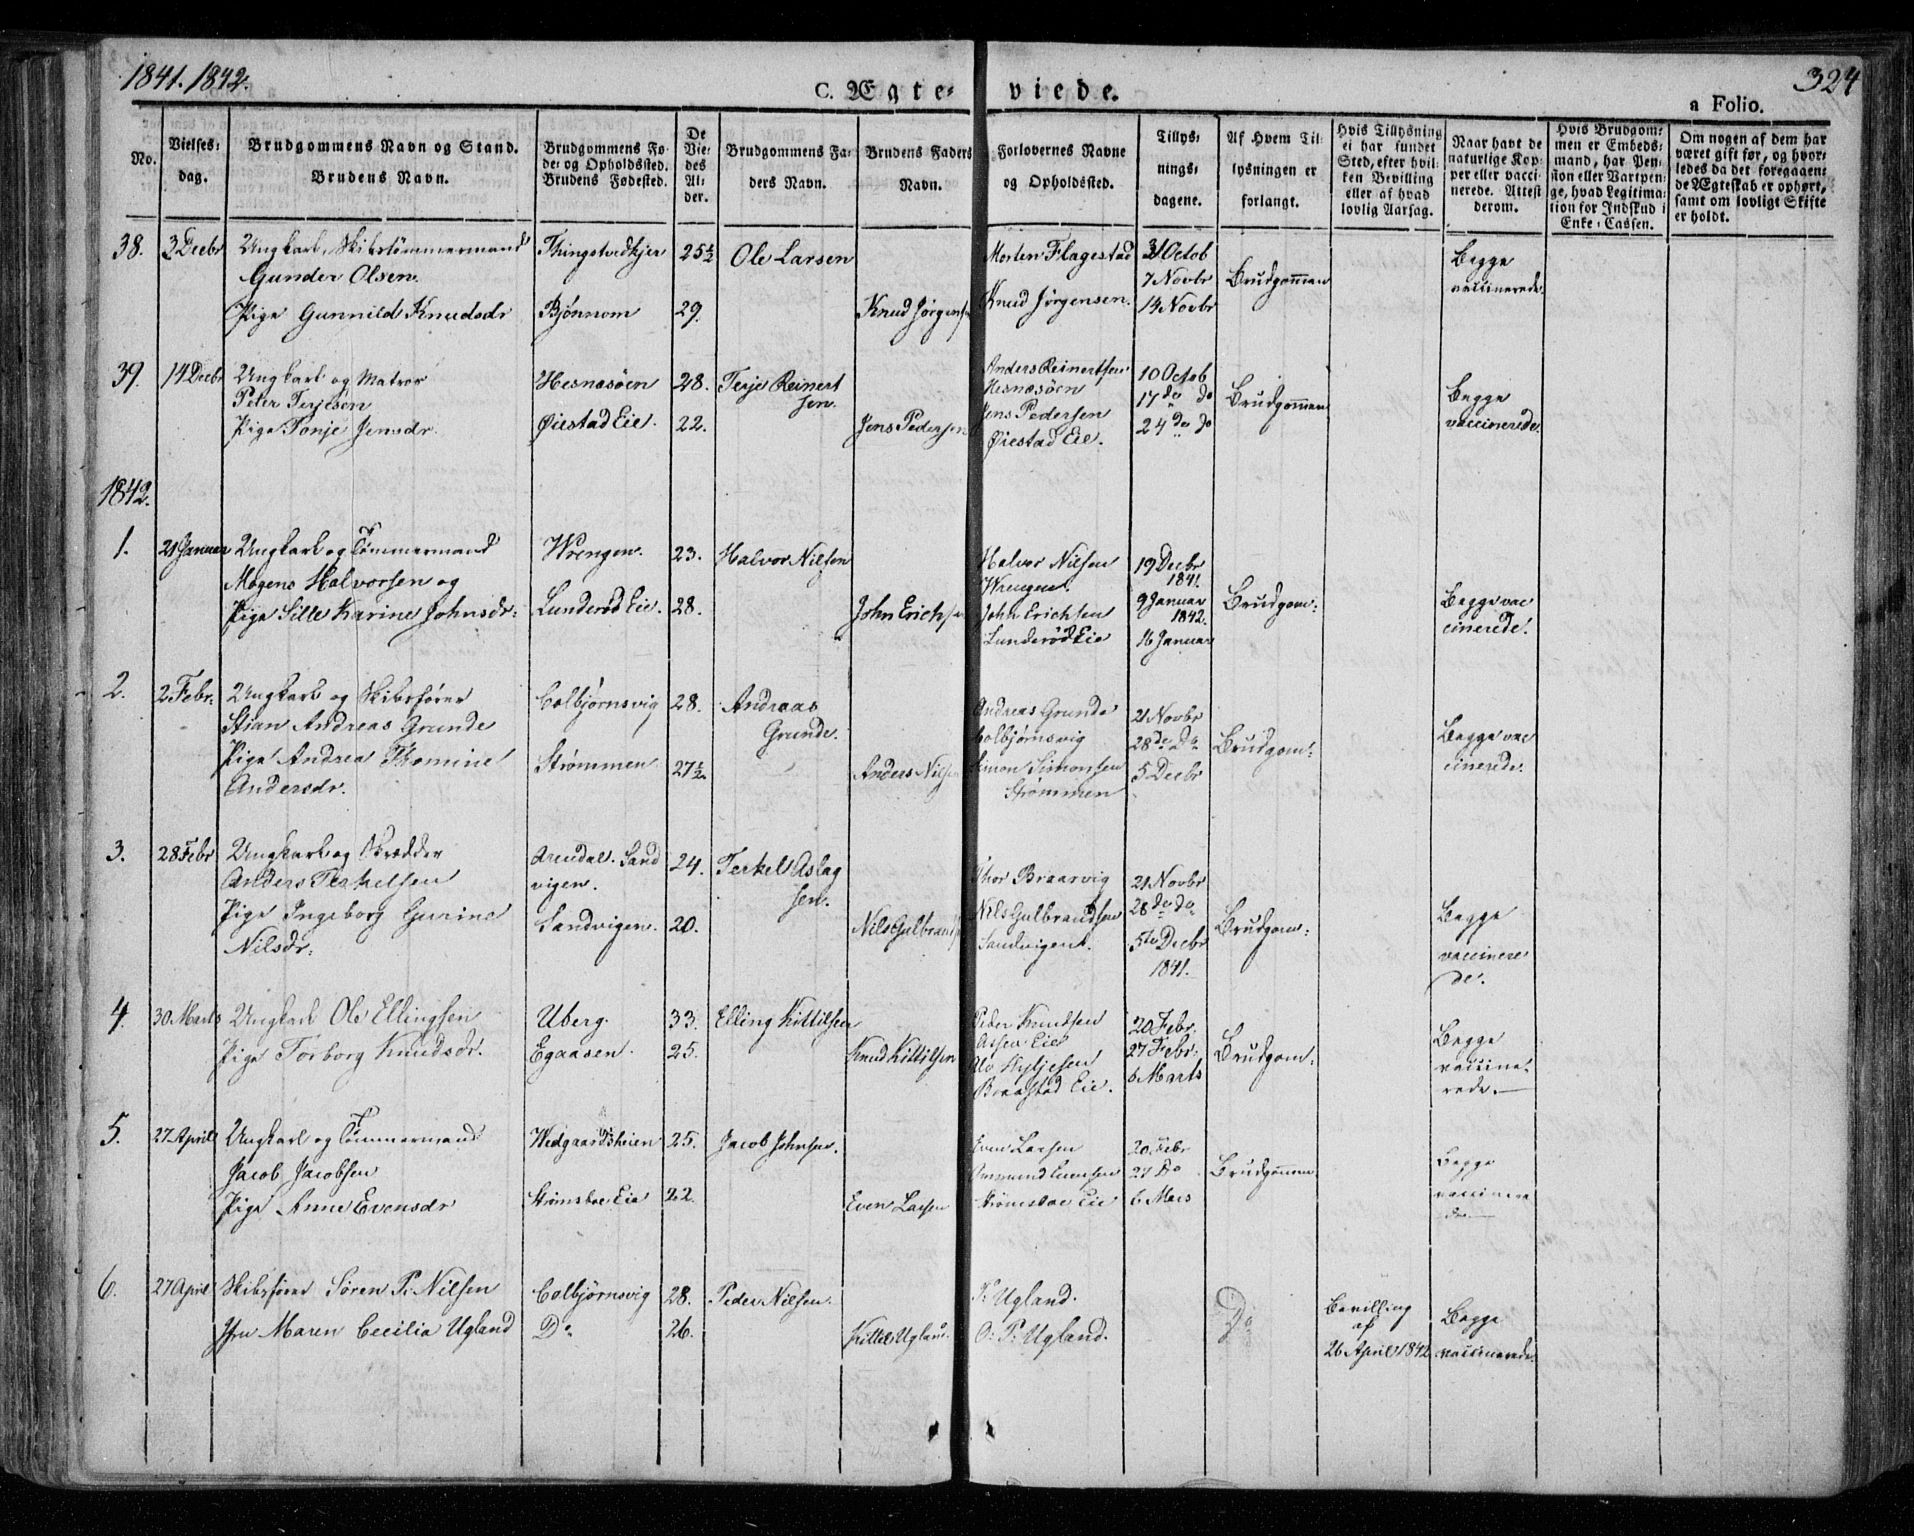 1841. 1842.
C. Ægte- viede.
324
a Folio.
No.
Vielses-
dag.
Brudgommens Navn og Stand.
Brudens Navn.
Brudgommens Fø-
de- og Opholdssted.
Brudens Fødested.
De
Vie-
des
Al-
der.
Brudgommens Fa-
ders Navn.
Brudens Faders
Navn.
Forlovernes Navne
og Opholdssted.
Tillys-
nings-
dagene.
Af Hvem Til-
lysningen er
forlangt.
Hvis Tillysning
ei har fundet
Sted, efter hvil-
ken Bevilling
eller af hvad
lovlig Aarsag.
Naar havt de
naturlige Kop-
per eller vacci-
nerede. Attest
derom.
Hvis Brudgom-
men er Embeds-
mand, har Pen-
sion eller Vartpen-
ge, hvad Legitima-
tion for Indskud i
Enke-Cassen.
Om nogen af dem har
været gift før, og hvor-
ledes da det foregaaen-
de Ægteskab er ophørt,
samt om lovligt Skifte
er holdt.
38. 3 Decbr Ungkarl, Skibstømmermand Thingstvedkjer 25½ Ole Larsen Morten Flagestad 31 Octob
Gunder Olsen. 7 Novbr Brudgommen Begge
Pige Gunnild Knudsdr Bjönnom 29. Knud Jørgensen Knud Jørgensen. 14 Novbr vaccinerede.
39. 14 Decbr Ungkarl og Matros Hesnæsöen 28. Terje Reinert Anders Reinertsen 10 Octob
Peter Terjesen sen. Hesnæsöen 17 do do Brudgommen Begge
Pige Tonje Jensdr. Øiestad Eie. 22. Jens Pedersen Jens Pedersen 24 do do vaccinerede.
Øiestad Eie.
1842.
1. 21 Januar Ungkarl og Tømmermand Wrengen. 23. Halvor Nilsen Halvor Nilsen 19 Decbr
Mogens Halvorsen og Wrengen. 1841.
Pige Sille Karine Johnsdr: Lunderød Eie. 28. John Erichsen John Erichsen 9 Januar 1842. Brudgom: Begge vac
Lunderød Eie 16 Januar cinerede.
2. 2 Febr: Ungkarl og Skibsfører Colbjørnsvig 28. Andreas Andreas Grunde 21 Novbr
Stian Andreas Grunde Grunde. Colbjørnsvig 28 do Do Brudgom: Begge vac
Pige Andrea Thomine Strømmen 27½ Anders Nilsen Simon Simonsen 5 Decbr cinerede.
Andersdr. Strømmen
3. 28 Febr Ungkarl og Skrædder Arendal. Sand 24. Terkel Aslag Thor Braarvig 21 Novbr
Anders Terkelsen vigen. sen. Nils Gulbrandsen 28 do do Brudgom: Begge
Pige Ingeborg Gurine Sandvigen. 20. Nils Gulbrandsen Sandvigen. 5te Decbr vaccinere
Nilsdr: 1841. de.
4. 30 Marts Ungkarl Ole Ellingsen Uberg. 33. Elling Kittilsen Peder Knudsen 20 Febr. Begge
Pige Torborg Knudsdr. Egaasen. 25. Knud Kittilsen Assen Eie 27 Febr: Brudgom: vaccine-
Braastad Eie. 6 Marts rede.
5. 27 April Ungkarl og Tømmermand Wedgaardsheien 25. Jacob Johnsen. Even Larsen 20 Febr
Jacob Jacobsen 27 Do Brudgommen Begge
Pige Anne Evensdr Strømsboe Eie 22 Even Larsen Strømsboe Eie 6 Mars vaccinere
de.
6. 27 April Skibsfører Søren P. Nilsen Colbjørnsvig 28. Peder Nilsen. K. Ugland. Do Bevilling Begge
Jfru Maren Cecilia Ugland Do 26. Kittel Ugland. O. P. Ugland. af
26 April 1842 vaccinerede.